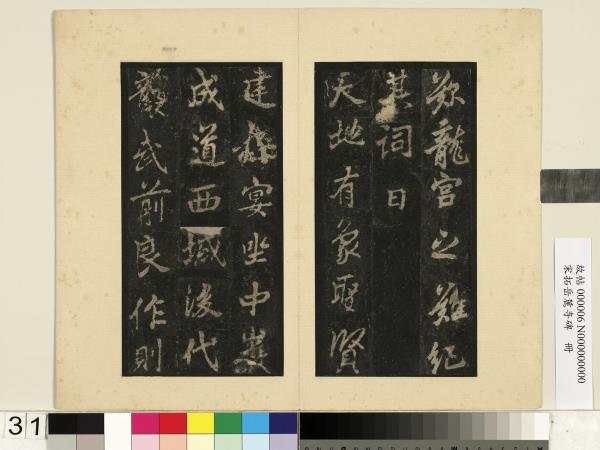 龍宮之難紀
其詞曰
天地有象聖賢
建宴坐中巖
成道西域後代
襲武前良作則
故帖 000006 N000000000
宋拓岳麓寺碑 冊
31